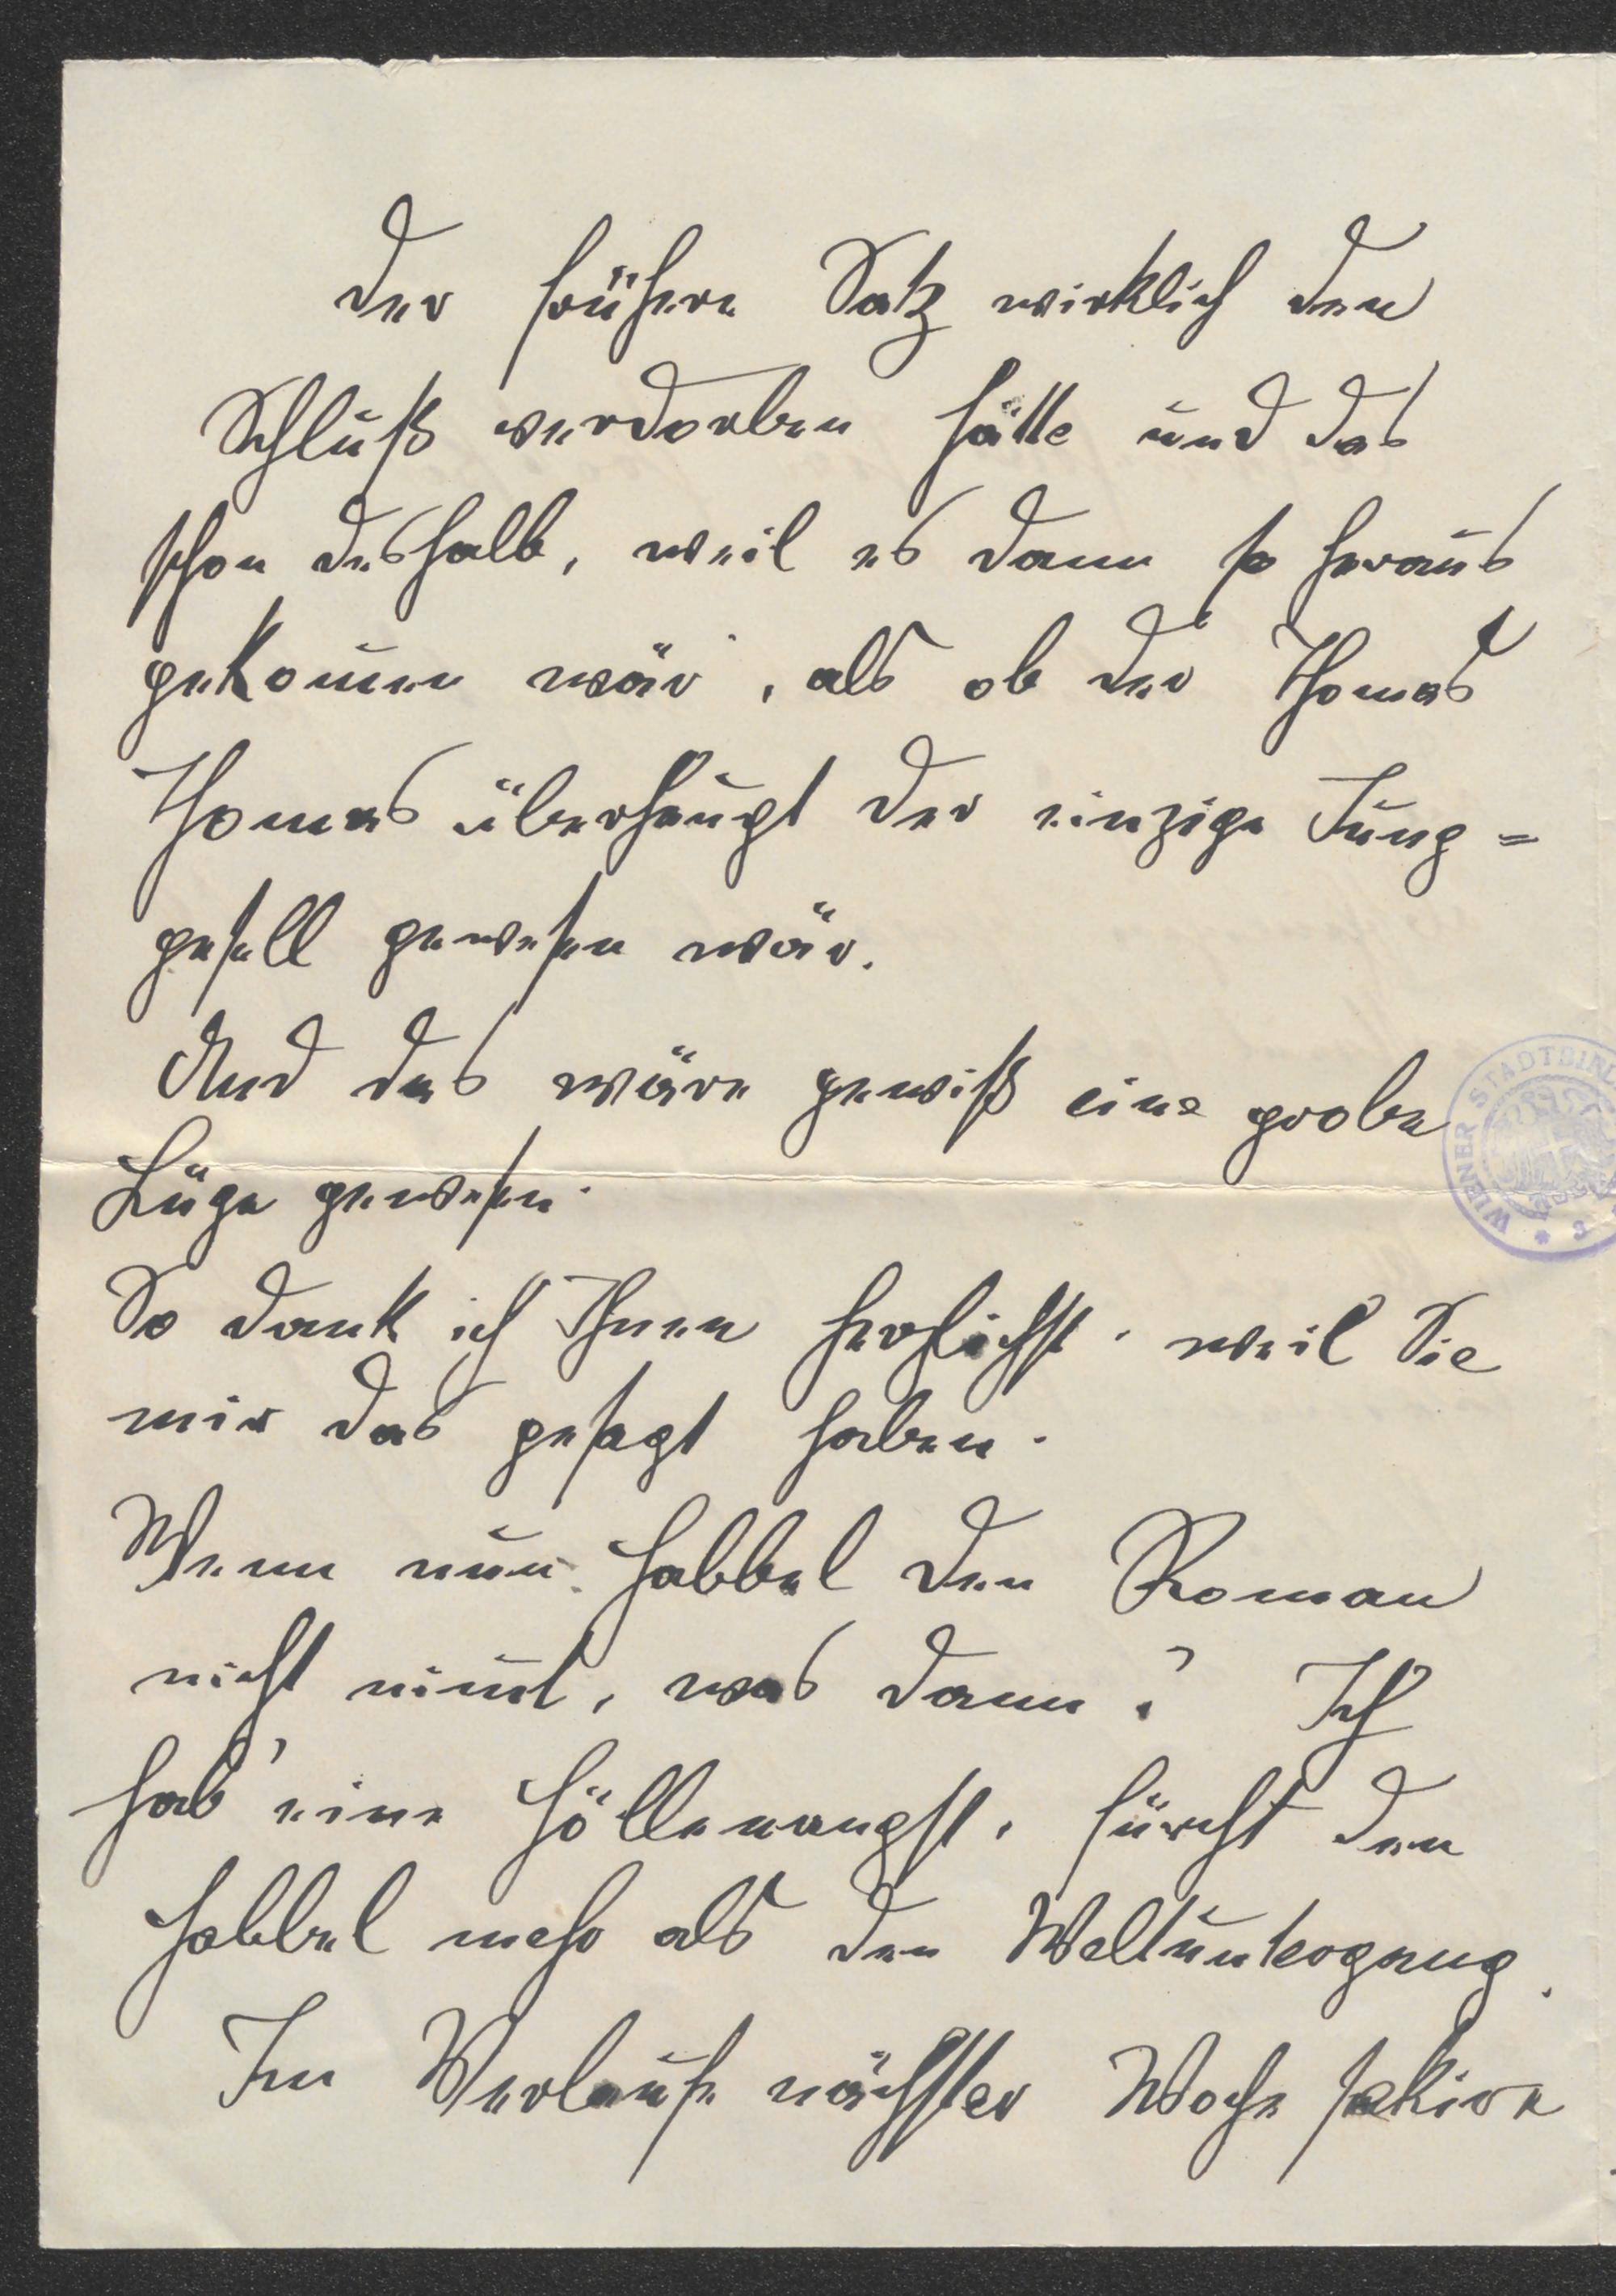 der frühere Satz wirklich den
Schluß verdorben hätte und das
schon deshalb, weil es dann so heraus
gekom̅en wär, als ob der Thomas
Thomas überhaupt der einzige Jung=
gesell gewesen wär.
Und das wäre gewiß eine grobe
Lüge gewesen.
So dank ich Ihnen herzlichst, weil Sie
mir das gesagt haben.
Wenn nun Habbel den Roman
nicht nim̅t, was dann? Ich
hab' eine Höllenangst, fürcht den
Habbel mehr als den Weltuntergang.
Im Verlaufe nächster Woche
WIENER STADTBI